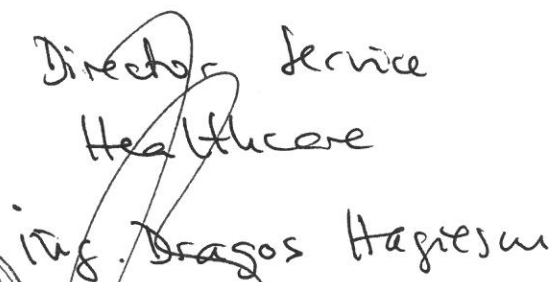 Director Service
Healthcare
ing. Dragos Hagiescu